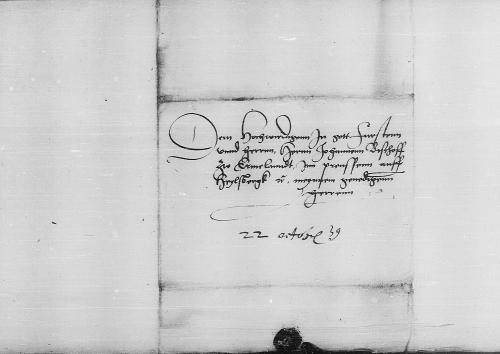 Dem Hochwirdigenn In gott Fursten
unnd herrenn, Herrn Johannem Bischoff
zu Ermelandt, Im preussenn auff
Heylsbergk etc. meynem genedigenn
Herrenn
22 octobris 39